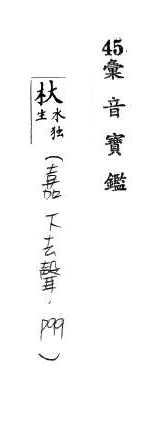 45.彙音寶鑑
杕 水独生
(嘉下去聲.P99)